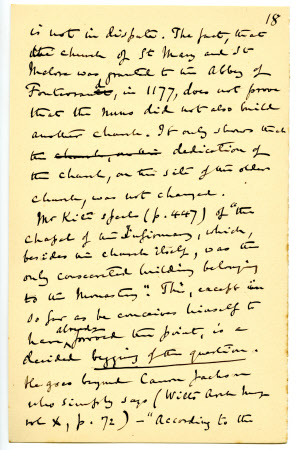 18
is not in dispute. The fact, that
the church of St Mary and St
Melore was granted to the Abbey of
Fontevrault, in 1177, does not prove
that the nuns did not also build
another church. It only shows that
the church, as the dedication of
the church, on the site of the older
church, was not changed.
Mr Kite speaks (p. 447) of "the
Chapel of the Infirmary, which,
besides the church itself, was the
only consecrated building belonging
to the Monastery". This, except in
so far as he conceives himself to
have already proved the point, is a
decided begging of the question.
He goes beyond Canon Jackson
who simply says (Wilts Arch Mag
vol X, p. 72) – "According to the